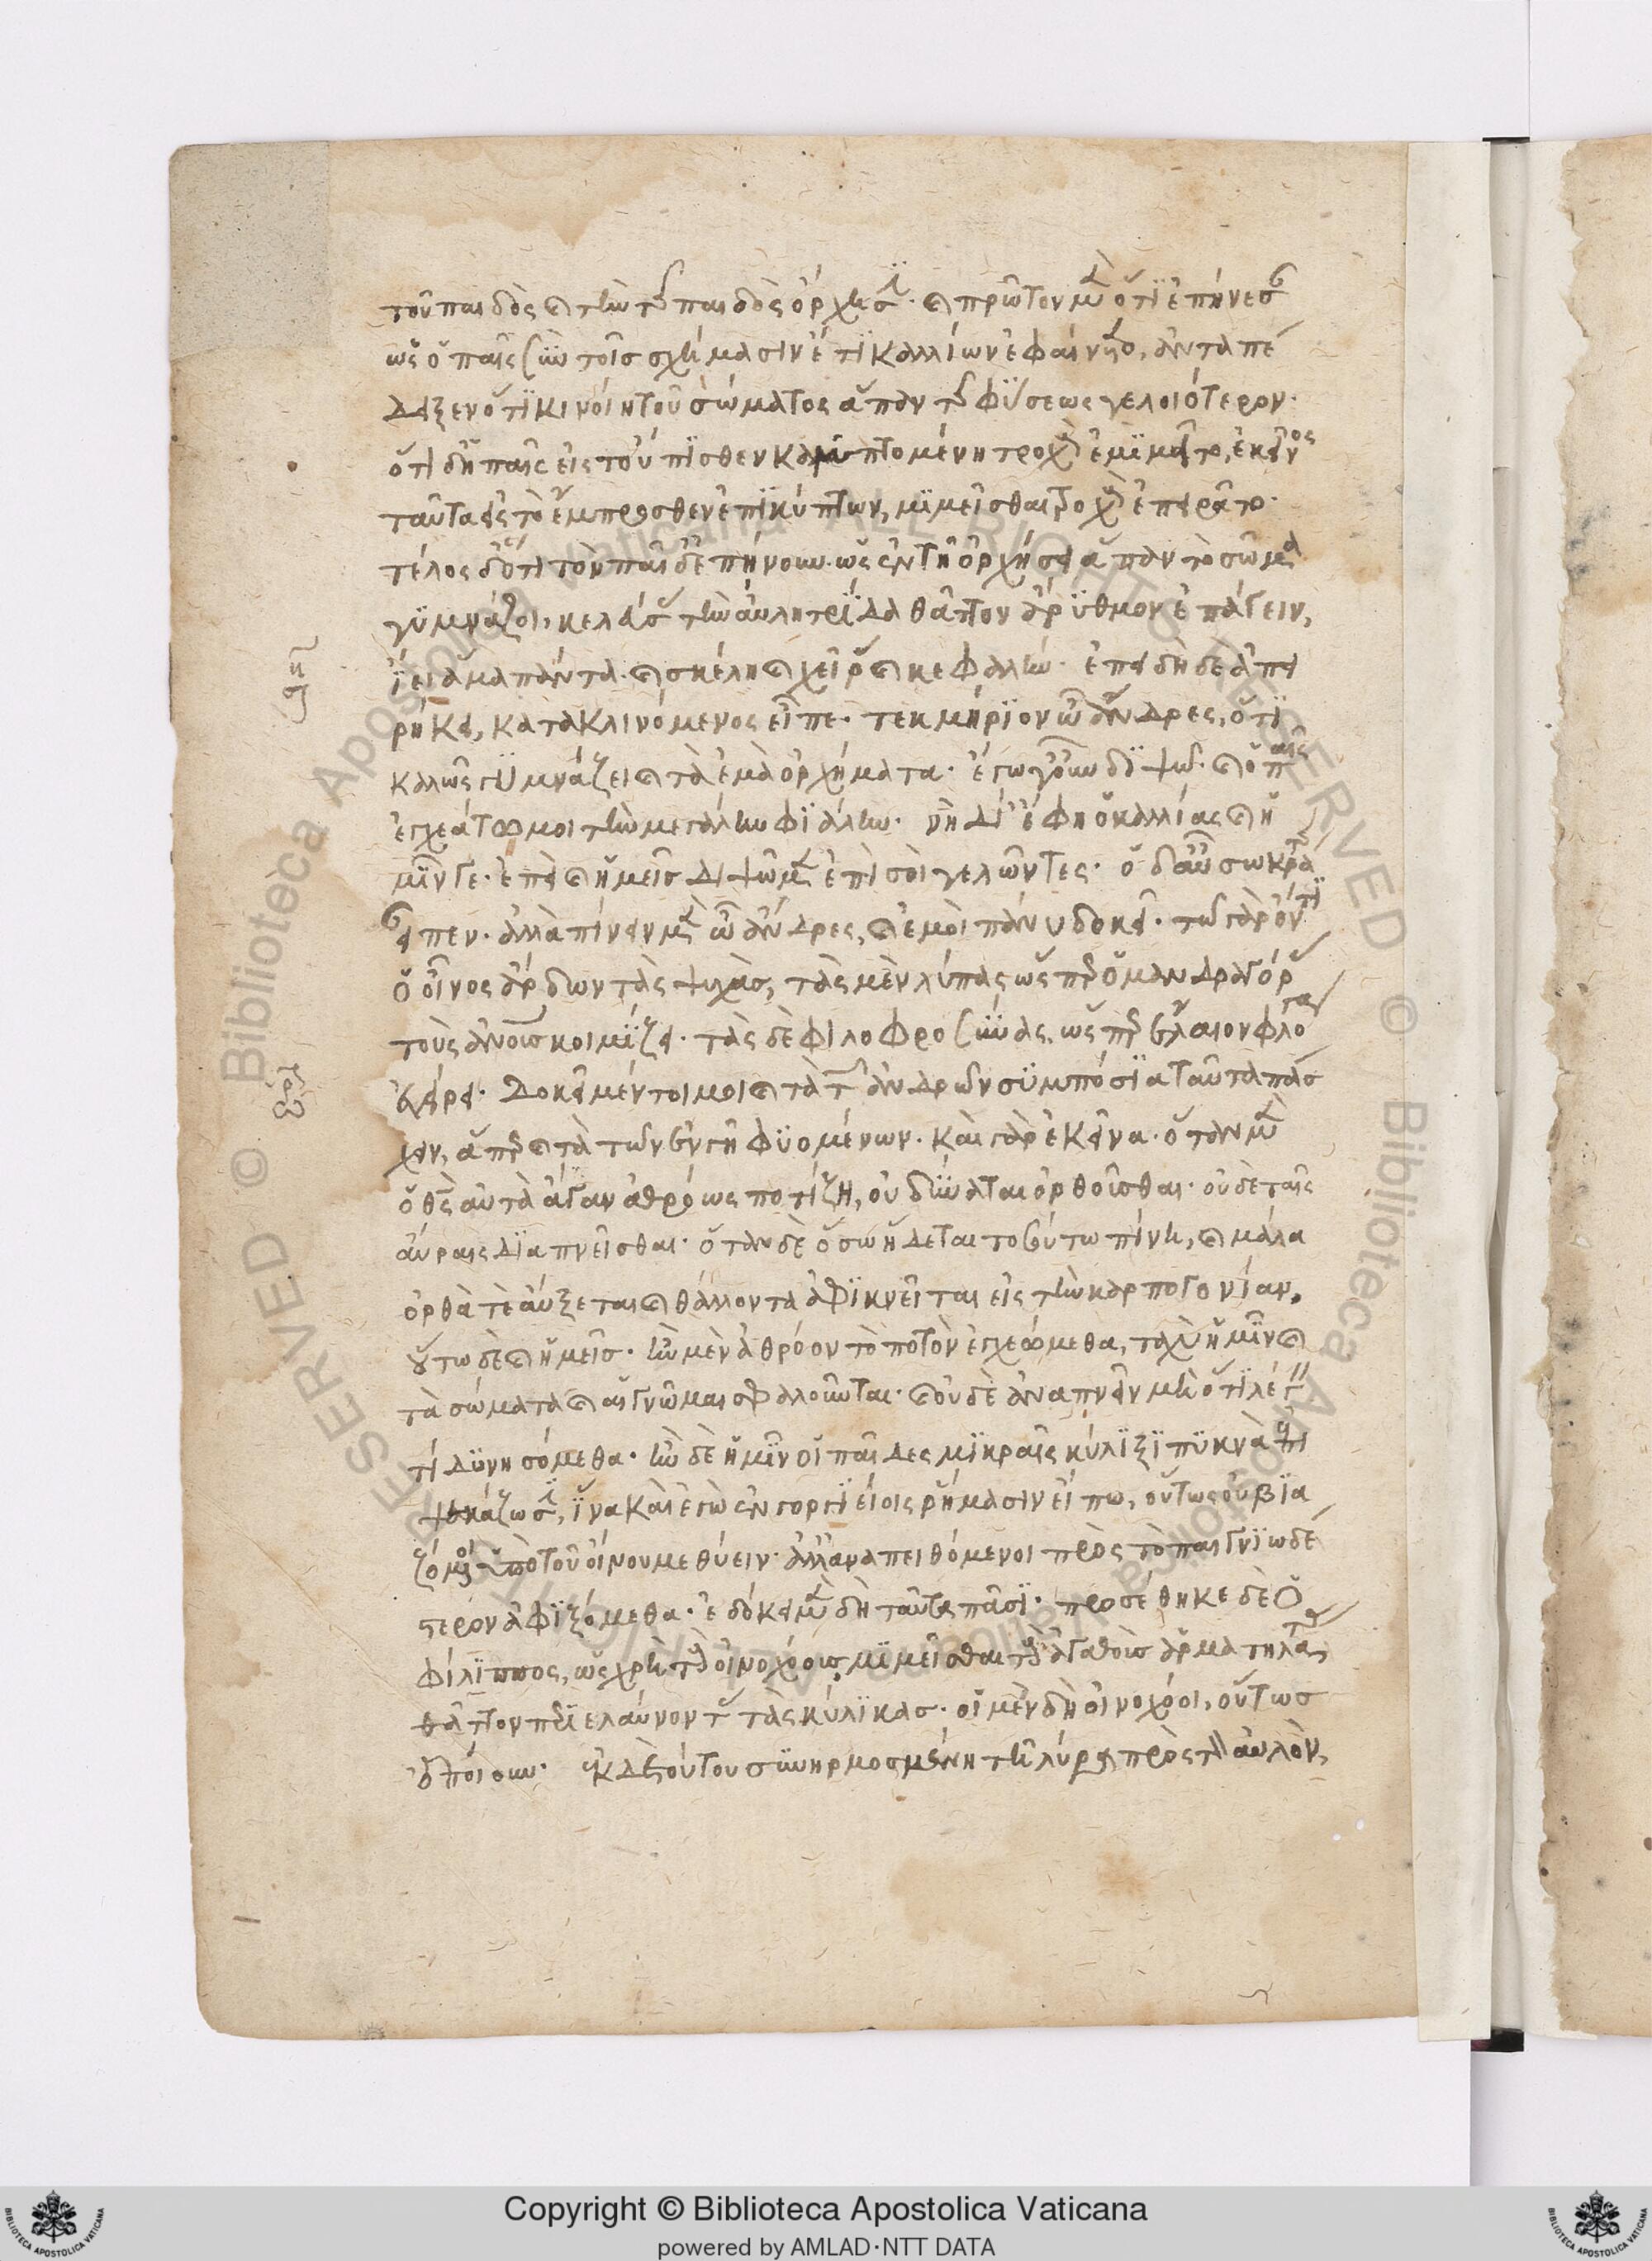 τοῦ παιδὸς καὶ τὴν τῆς παιδὸς ὄρχησιν· καὶ πρῶτον μὲν ὅτι ἐπήνεσαν
ὡς ὁ παῖς σὺν τοῖς σχήμασιν ἔτι καλλίων ἐφαίνετο, ἀνταπέ
δειξεν ὅτι κινοίη τοῦ σώματος ἅπαν τῆς φύσεως γελοιότερον·
ὅτι δ' ἡ παῖς εἰς τοὔπισθεν καμπτομένη τροχοὺς ἐμιμεῖτο, ἐκεῖνος
ταῦτα εἰς τὸ ἔμπροσθεν ἐπικύπτων, μιμεῖσθαι τροχοὺς ἐπειρᾶτο·
τέλος δ' ὅτι τὸν παῖδ' ἐπήνουν· ὡς ἐν τῇ ὀρχήσει ἅπαν τὸ σῶμα
γυμνάζοι, κελεύσας τὴν αὐλητρίδα θάττον ἀρυθμὸν ἐπάγειν,
ἵει ἅμα πάντα· καὶ σκέλη καὶ χεῖρας καὶ κεφαλήν· ἐπειδὴ δὲ ἀπει
ρήκει, κατακλινόμενος εἶπε· τεκμήριον ὦ ἄνδρες, ὅτι
καλῶς γυμνάζει καὶ τὰ ἐμὰ ὀρχήματα· ἐγὼ γοῦν διψῶ· καὶ ὁ παῖς
ἐγχεάτω μοι τὴν μεγάλην φιάλην· νὴ Δί' ἔφη ὁ καλλίας καὶ ἡ
μῖν γε· ἐπεὶ καὶ ἡμεῖς διψῶμεν ἐπὶ σοὶ γελῶντες· ὁ δ' αὖ σωκράτης
εἶπεν· ἀλλὰ πίνειν μὲν ὦ ἄνδρες, καὶ ἐμοὶ πάνυ δοκεῖ· τῷ γὰρ ὄντι
ὁ οἶνος ἄρδων τὰς ψυχὰς, τὰς μὲν λύπας ὥσπερ ὁ μανδραγόρας
τοὺς ἀνθρώπους κοιμίζει· τὰς δὲ φιλοφροσύνας, ὥσπερ ἔλαιον φλόγα
ἐγείρει· δοκεῖ μέντοι μοι καὶ τὰ τῶν ἀνδρῶν συμπόσια ταῦτα πάσ
χειν, ἅπερ καὶ τὰ τῶν ἐν γῇ φυομένων· καὶ γὰρ ἐκεῖνα· ὅταν μὲν
ὁ θεὸς αὐτὰ ἄγαν ἀθρόως ποτίζῃ, οὐ δύναται ὀρθοῦσθαι· οὐδὲ ταῖς
αὔραις διαπνεῖσθαι· ὅταν δὲ ὅσῳ ἥδεται τοσούτῳ πίνῃ, καὶ μάλα
ὀρθά τε αὔξεται καὶ θάλλοντα ἀφικνεῖται εἰς τὴν καρπογονίαν.
οὕτω δὲ καὶ ἡμεῖς· ἢν μὲν ἀθρόον τὸ ποτὸν ἐγχεώμεθα, ταχὺ ἡμῖν καὶ
τὰ σώματα καὶ αἱ γνῶμαι σφαλοῦνται· καὶ οὐδὲ ἀναπνεῖν μὴ ὅτι λέγειν
τί δυνησόμεθα· ἢν δὲ ἡμῖν οἱ παῖδες μικραῖς κύλιξι πυκνὰ ἐπι
ψεκάζωσιν, ἵνα καὶ ἐγὼ ἐν γοργιείοις ῥήμασιν εἴπω, οὕτως οὐ βια
ζόμενοι ὑπὸ τοῦ οἴνου μεθύειν· ἀλλ' ἀναπειθόμενοι πρὸς τὸ παιγνιωδέ
στερον ἀφιξόμεθα· ἐδόκει μὲν δὴ ταῦτα πᾶσι· προσέθηκε δὲ ὁ
φίλιππος, ὡς χρὴ τοὺς οἰνοχόους μιμεῖσθαι τοὺς ἀγαθοὺς ἁρματηλάτας
θᾶττον περιελαύνοντας τὰς κύλικας· οἱ μὲν δὴ οἰνοχόοι, οὕτως
ἐποίουν· ἐκ δὲ τούτου συνηρμοσμένῃ τῇ λύρᾳ πρὸς τὸν αὐλὸν,
Copyright © Biblioteca Apostolica Vaticana
powered by AMLAD·NTT DATA